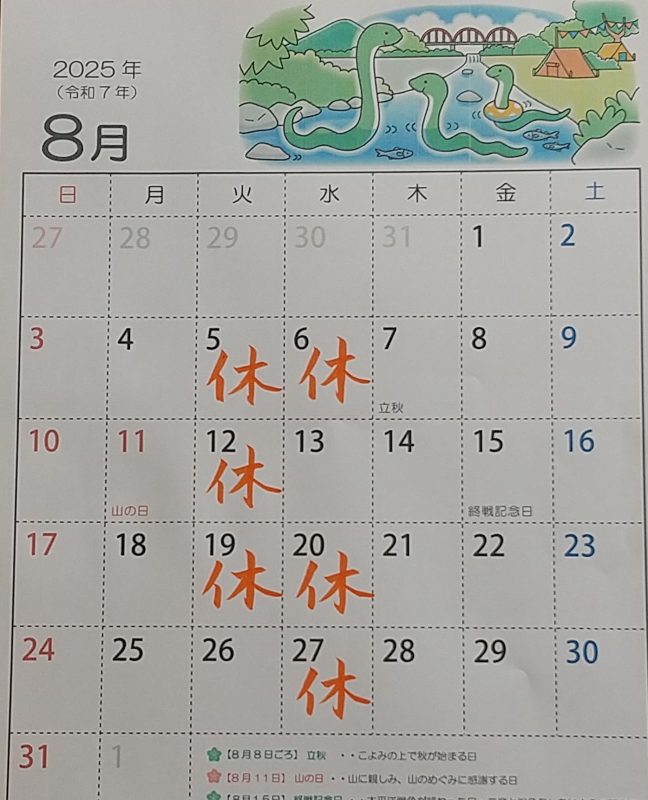 2025年
(令和7年)
8月
日 月 火 水 木 金 土
27 28 29 30 31 1 2
3 4 5 6 7 8 9
休 休
立秋
10 11 12 13 14 15 16
休
山の日 終戦記念日
17 18 19 20 21 22 23
休 休
24 25 26 27 28 29 30
休
31 1
【8月8日ごろ】 立秋 ・・こよみの上で秋が始まる日
【8月11日】 山の日 ・・山に親しみ、山のめぐみに感謝する日
【8月15日】 終戦記念日